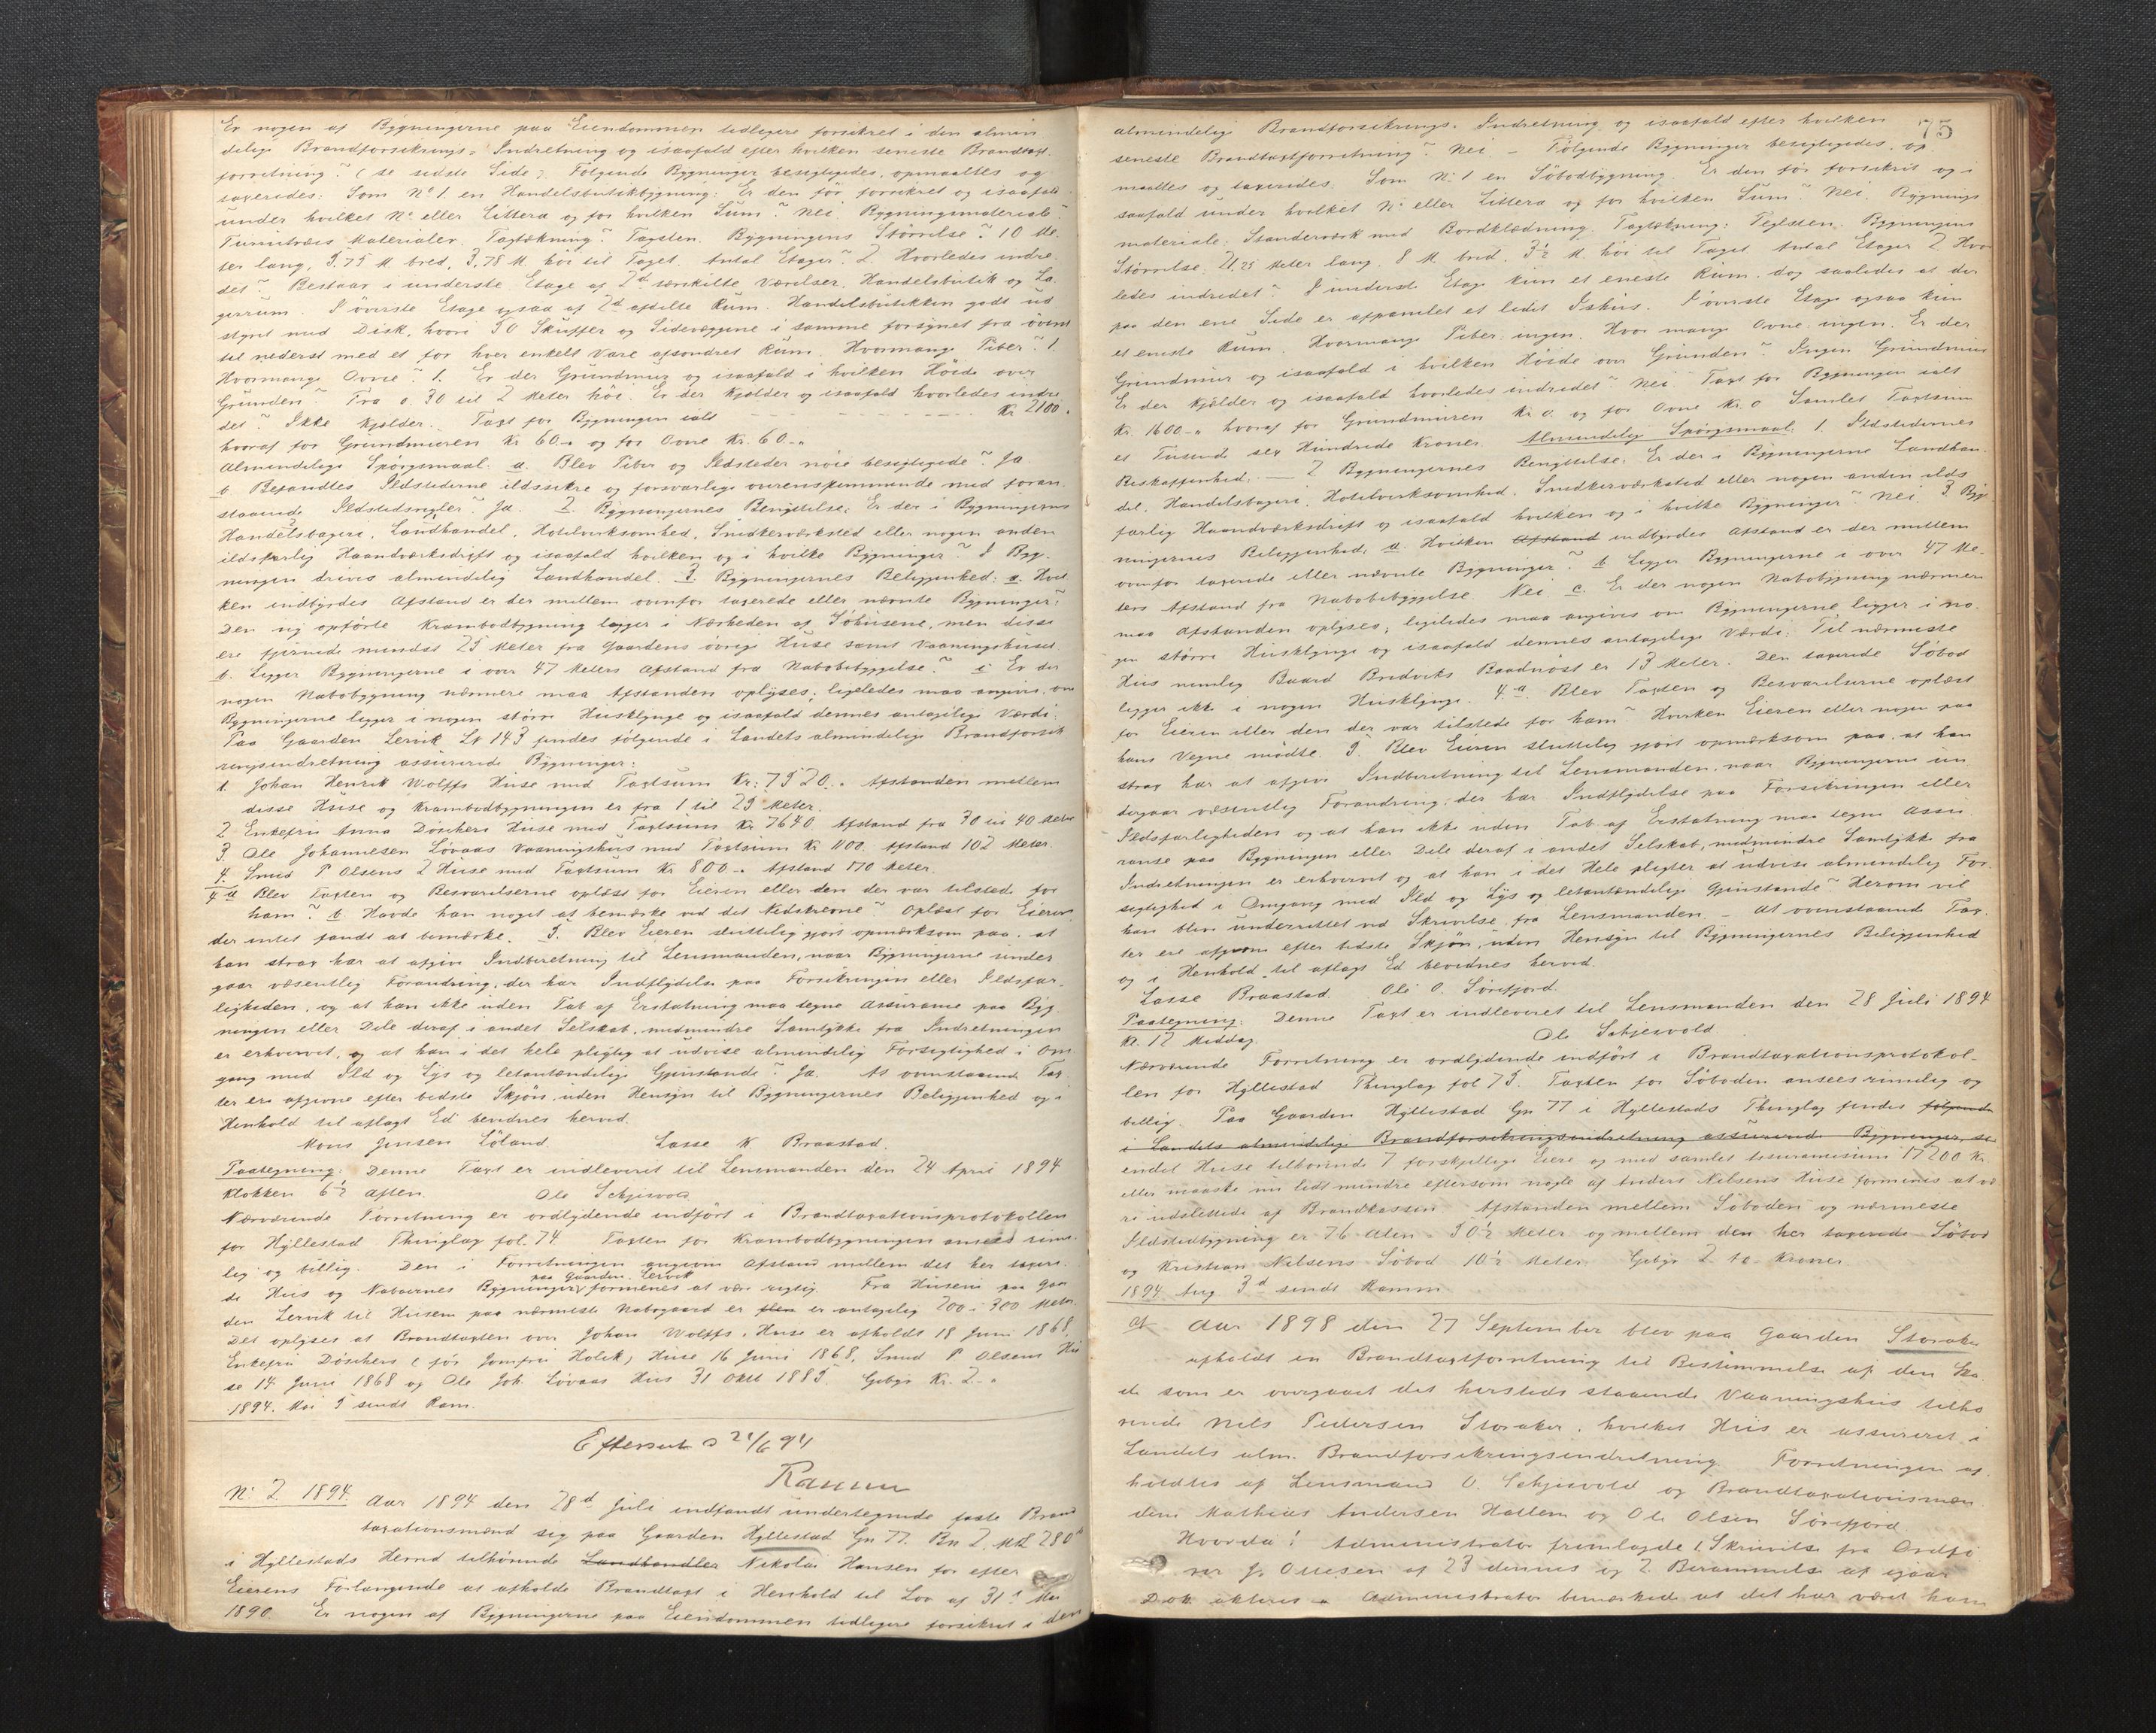 Er nogen af Bygningerne paa Eiendommen tidligere forsikret i den almin
delige Brandforsikrings-Indretning og isaafald efter hvilken seneste Brandtaxt-
forretning? (se sidste Side). Følgende Bygninger besigtigedes, opmaaltes og
taxeredes: Som No 1. en Handelsbutikbygning: Er den før forsikret og isaafald
under hvilket No eller Littera og for hvilken Sum? Nei. Bygningsmateriale?
Materialer. Tagtækning? Tagsten. Bygningens Størrelse? 10 Me-
ter lang, 5.75 M. bred, 3,75 M. høi til Taget. Antal Etager? 2. Hvorledes indre-
det? Bestaar i underste Etage af 2de særskilte Værelser, Handelsbutik og La-
gerrum. I øverste Etage ogsaa af 2de afdelte Rum. Handelsbutikken godt ud
styret med Disk, hvori 50 Skuffer og Sidevæggene i samme forsynet fra øverst
til nederst med et for hver enkelt Vare afsondret Rum. Hvormange Piber? 1.
Hvormange Ovne? 1. Er der Grundmur og isaafald i hvilken Høide over
Grunden? Fra 0.30 til 2 Meter høi. Er der Kjelder og isaafald hvorledes indre
det? Ikke Kjelder. Taxt for Bygningen ialt - - - - - - Kr. 2100.
hvoraf for Grundmuren Kr 60.- og for Ovne Kr. 60.-
Almindelige Spørgsmaal: a. Blev Piber og Ildsteder nøie besigtigede? Ja
b Befandtes Ildstederne ildssikre og forsvarlige overensstemmende med foran-
staaende Ildstedsregler? Ja. 2. Bygningernes Benyttelse: Er der i Bygningerne
Handelsbageri, Landhandel, Hotelvirksomhed, Snedkerværksted eller nogen anden
ildsfarlig Haandværksdrift og isaafald hvilken og i hvilke Bygninger? I Byg-
ningen drives almindelig Landhandel. 3. Bygningernes Beliggenhed: a. Hvil
ken indbyrdes Afstand er der mellem ovenfor taxerede eller nævnte Bygninger?
Den ny opførte Krambodbygning ligger i Nærheden af Søhusene, men disse
ere fjernede mindst 25 Meter fra Gaardens øvrige Huse samt Vaaningshuset
b. Ligger Bygningerne i over 47 Meters Afstand fra Nabobebyggelse? c Er der
nogen Nabobygning nærmere maa Afstanden oplyses; ligeledes maa angives, om
Bygningerne ligger i nogen større Husklynge og isaafald dennes antagelige Værdi:
Paa Gaarden Lervik Lr 143 findes følgende i Landets almindelige Brandforsik
ringsindretning assurerede Bygninger:
1. Johan Henrik Wolffs Huse med Taxtsum Kr: 7520.- Afstanden mellem
disse Huse og Krambodbygningen er fra 1 til 25 Meter.
2 Enkefru Anna Døschers Huse med Taxtsum Kr 7640 Afstand fra 30 til 40 Meter
3. Ole Johannesen Løvaas Vaaningshus med Taxtsum Kr 1100. Afstand 102 Meter.
4. Smed P Olsens 2 Huse med Taxtsum Kr 800.- Afstand 170 Meter.
4 a Blev Taxten og Besvarelserne oplæst for Eieren eller den der var tilstede for
ham? b Havde han noget at bemærke ved det Nedskrevne? Oplæst for Eieren
der intet fandt at bemærke. 5. Blev Eieren sluttelig gjort opmærksom paa, at
han strax har at afgive Indberetning til Lensmanden, naar Bygningerne under
gaar væsentlig Forandring, der har Indflydelse paa Forsikringen eller Ildsfar-
ligheden, og at han ikke uden Tab af Erstatning maa tegne Assurance paa Byg
ningen eller Dele deraf i andet Selskab, medmindre Samtykke fra Indretningen
er erhvervet, og at han i det hele pligtig at udvise almindelig Forsigtighed i Om
gang med Ild og Lys og letantændelige Gjenstande? Ja. At ovenstaaende Tax
ter ere afgivne efter bedste Skjøn, uden Hensyn til Bygningernes Beliggenhed og i
Henhold til aflagt Ed bevidnes herved.
Mons Jensen Løland Lasse N Braastad.
Paategning: Denne Taxt er indleveret til Lensmanden den 24 April 1894
Klokken 6½ Aften. Ole Schjesvold
Nærværende Forretning er ordlydende indført i Brandtaxationsprotokollen
for Hyllestad Thinglag fol. 74. Taxten for Krambodbygningen ansees rime-
lig og billig. Den i Forretningen angivne Afstand mellem det her taxere-
de Hus og Naboernes Bygninger paa Gaarden Lervik formenes at være rigtig. Fra Husene paa Gaar
den Lervik til Husene paa nærmeste Nabogaard er der antagelig 200 à 300 Meter.
Det oplyses at Brandtaxten over Johan Wolffs Huse er afholdt 18 Juni 1868,
Enkefru Døschers (før Jomfru Holck) Huse 16 Juni 1868, Smed P Olsens Hu
se 14 Juni 1868 og Ole Joh. Løvaas Hus 31 Oktr 1885. Gebyr Kr. 2.-
1894. Mai 5 sendt Ram.
Efterset d 21/6 94
Ramm
No 2 1894. Aar 1894 den 28de Juli indfandt undertegnede faste Brand
taxationsmænd sig paa Gaarden Hyllestad Gn 77. Bn 2. Mtl 280
i Hyllestads Herred tilhørende Landhandler Nikolai Hansen for efter
Eierens Forlangende at afholde Brandtaxt i Henhold til Lov af 31te Mai
1890. Er nogen af Bygningerne paa Eiendommen tidligere forsikret i den
75
almindelige Brandforsikrings-Indretning og isaafald efter hvilken
seneste Brandtaxtforretning? Nei. - Følgende Bygninger besigtigedes, op
maaltes og taxeredes. Som No 1 en Søbodbygning. Er den før forsikret og i
saafald under hvilket No eller Littera og for hvilken Sum? Nei. Bygnings
materiale: Standerværk med Bordklædning. Tagtækning: Teglsten. Bygningens
Størrelse. 21,25 Meter lang. 8 M. bred. 3½ M. høi til Taget. Antal Etager 2 Hvor
ledes indredet? I underste Etage kun et eneste Rum, dog saaledes at der
paa den ene Side er afpanelet et lidet Ishus. I øverste Etage ogsaa kun
et eneste Rum. Hvormange Piber: ingen. Hvor mange Ovne: ingen. Er der
Grundmur og isaafald i hvilken Høide over Grunden? Ingen Grundmur
Er der Kjelder og isaafald hvorledes indredet? Nei. Taxt for Bygningen ialt
Kr. 1600.- hvoraf for Grundmuren Kr 0. og for Ovne Kr. 0 Samlet Taxtsum
et Tusende sex Hundrede Kroner. Almindelige Spørgsmaal: 1. Ildstedernes
Beskaffenhed: — 2 Bygningernes Benyttelse: Er der i Bygningerne Landhan-
del, Handelsbageri Hotelvirksomhed, Snedkerværksted eller nogen anden ilds
farlig Haandværksdrift og isaafald hvilken og i hvilke Bygninger? Nei. 3 Byg
ningernes Beliggenhed: a. Hvilken Afstand indbyrdes Afstand er der mellem
ovenfor taxerede eller nævnte Bygninger? b Ligger Bygningerne i over 47 Me-
ters Afstand fra Nabobebyggelse. Nei c. Er der nogen Nabobygning nærmere
maa Afstanden oplyses; ligeledes maa angives om Bygningerne ligger i no-
gen større Husklynge og isaafald dennes antagelige Værdi: Til nærmeste
Hus nemlig Baard Bredviks Baadnøst er 13 Meter. Den taxerede Søbod
ligger ikke i nogen Husklynge. 4.a. Blev Taxten og Besvarelserne oplæst
for Eieren eller den der var tilstede for ham? Hverken Eieren eller nogen paa
hans Vegne mødte. 5. Blev Eieren sluttelig gjort opmærksom paa, at han
strax har at afgive Indberetning til Lensmanden, naar Bygningerne un
dergaar væsentlig Forandring, der har Indflydelse paa Forsikringen eller
Ildsfarligheden og at han ikke uden Tab af Erstatning maa tegne Assu
ranse paa Bygningen eller Dele deraf i andet Selskab, medmindre Samtykke fra
Indretningen er erhvervet og at han i det Hele pligter at udvise almindelig For-
sigtighed i Omgang med Ild og Lys og letantændelige Gjenstande? Herom vil
han blive underrettet ved Skrivelse fra Lensmanden. - At ovenstaaende Tax-
ter ere afgivne efter bedste Skjøn, uden Hensyn til Bygningernes Beliggenhed
og i Henhold til aflagt Ed bevidnes herved.
Lasse Braastad. Ole O. Sørefjord.
Paategning: Denne Taxt er indleveret til Lensmanden den 28 Juli 1894
Kl. 12 Middag. Ole Schjesvold
Nærværende Forretning er ordlydende indført i Brandtaxationsprotokol-
len for Hyllestad Thinglag fol 75. Taxten for Søboden ansees rimelig og
billig. Paa Gaarden Hyllestad Gn 77 i Hyllestads Thinglag findes følgende
i Landets almindelige Brandforsikringsindretning assurerede Bygninger, se
endel Huse tilhørende 7 forskjellige Eiere og med samlet Assurancesum 17200 Kr
eller maaske nu lidt mindre eftersom nogle af Anders Nilsens Huse formenes at væ
re udslettede af Brandkassen Afstanden mellem Søboden og nærmeste
Ildstedbygning er 76 Alen - 50½ Meter og mellem den her taxerede Søbod
og Kristian Nilsens Søbod 10½ Meter. Gebyr 2 to Kroner.
1894 Aug 3d sendt Ramm
Aar 1898 den 27 September blev paa Gaarden Storaker
afholdt en Brandtaxtforretning til Bestemmelse af den Ska
de som er overgaaet det hersteds staaende Vaaningshus tilhø
rende Nils Pedersen Storaker, hvilket Hus er assureret i
Landets alm. Brandforsikringsindretning. Forretningen af
holdtes af Lensmand O. Schjesvold og Brandtaxationsmæn
dene Mathias Andersen Hatlem og Ole Olsen Sørefjord.
Hvorda! Administrator fremlagde 1. Skrivelse fra Ordfø
rer J. Ottesen af 23 dennes og 2. Berammelse af igaar
Dok akteres - Administrator bemærkede at det har været ham